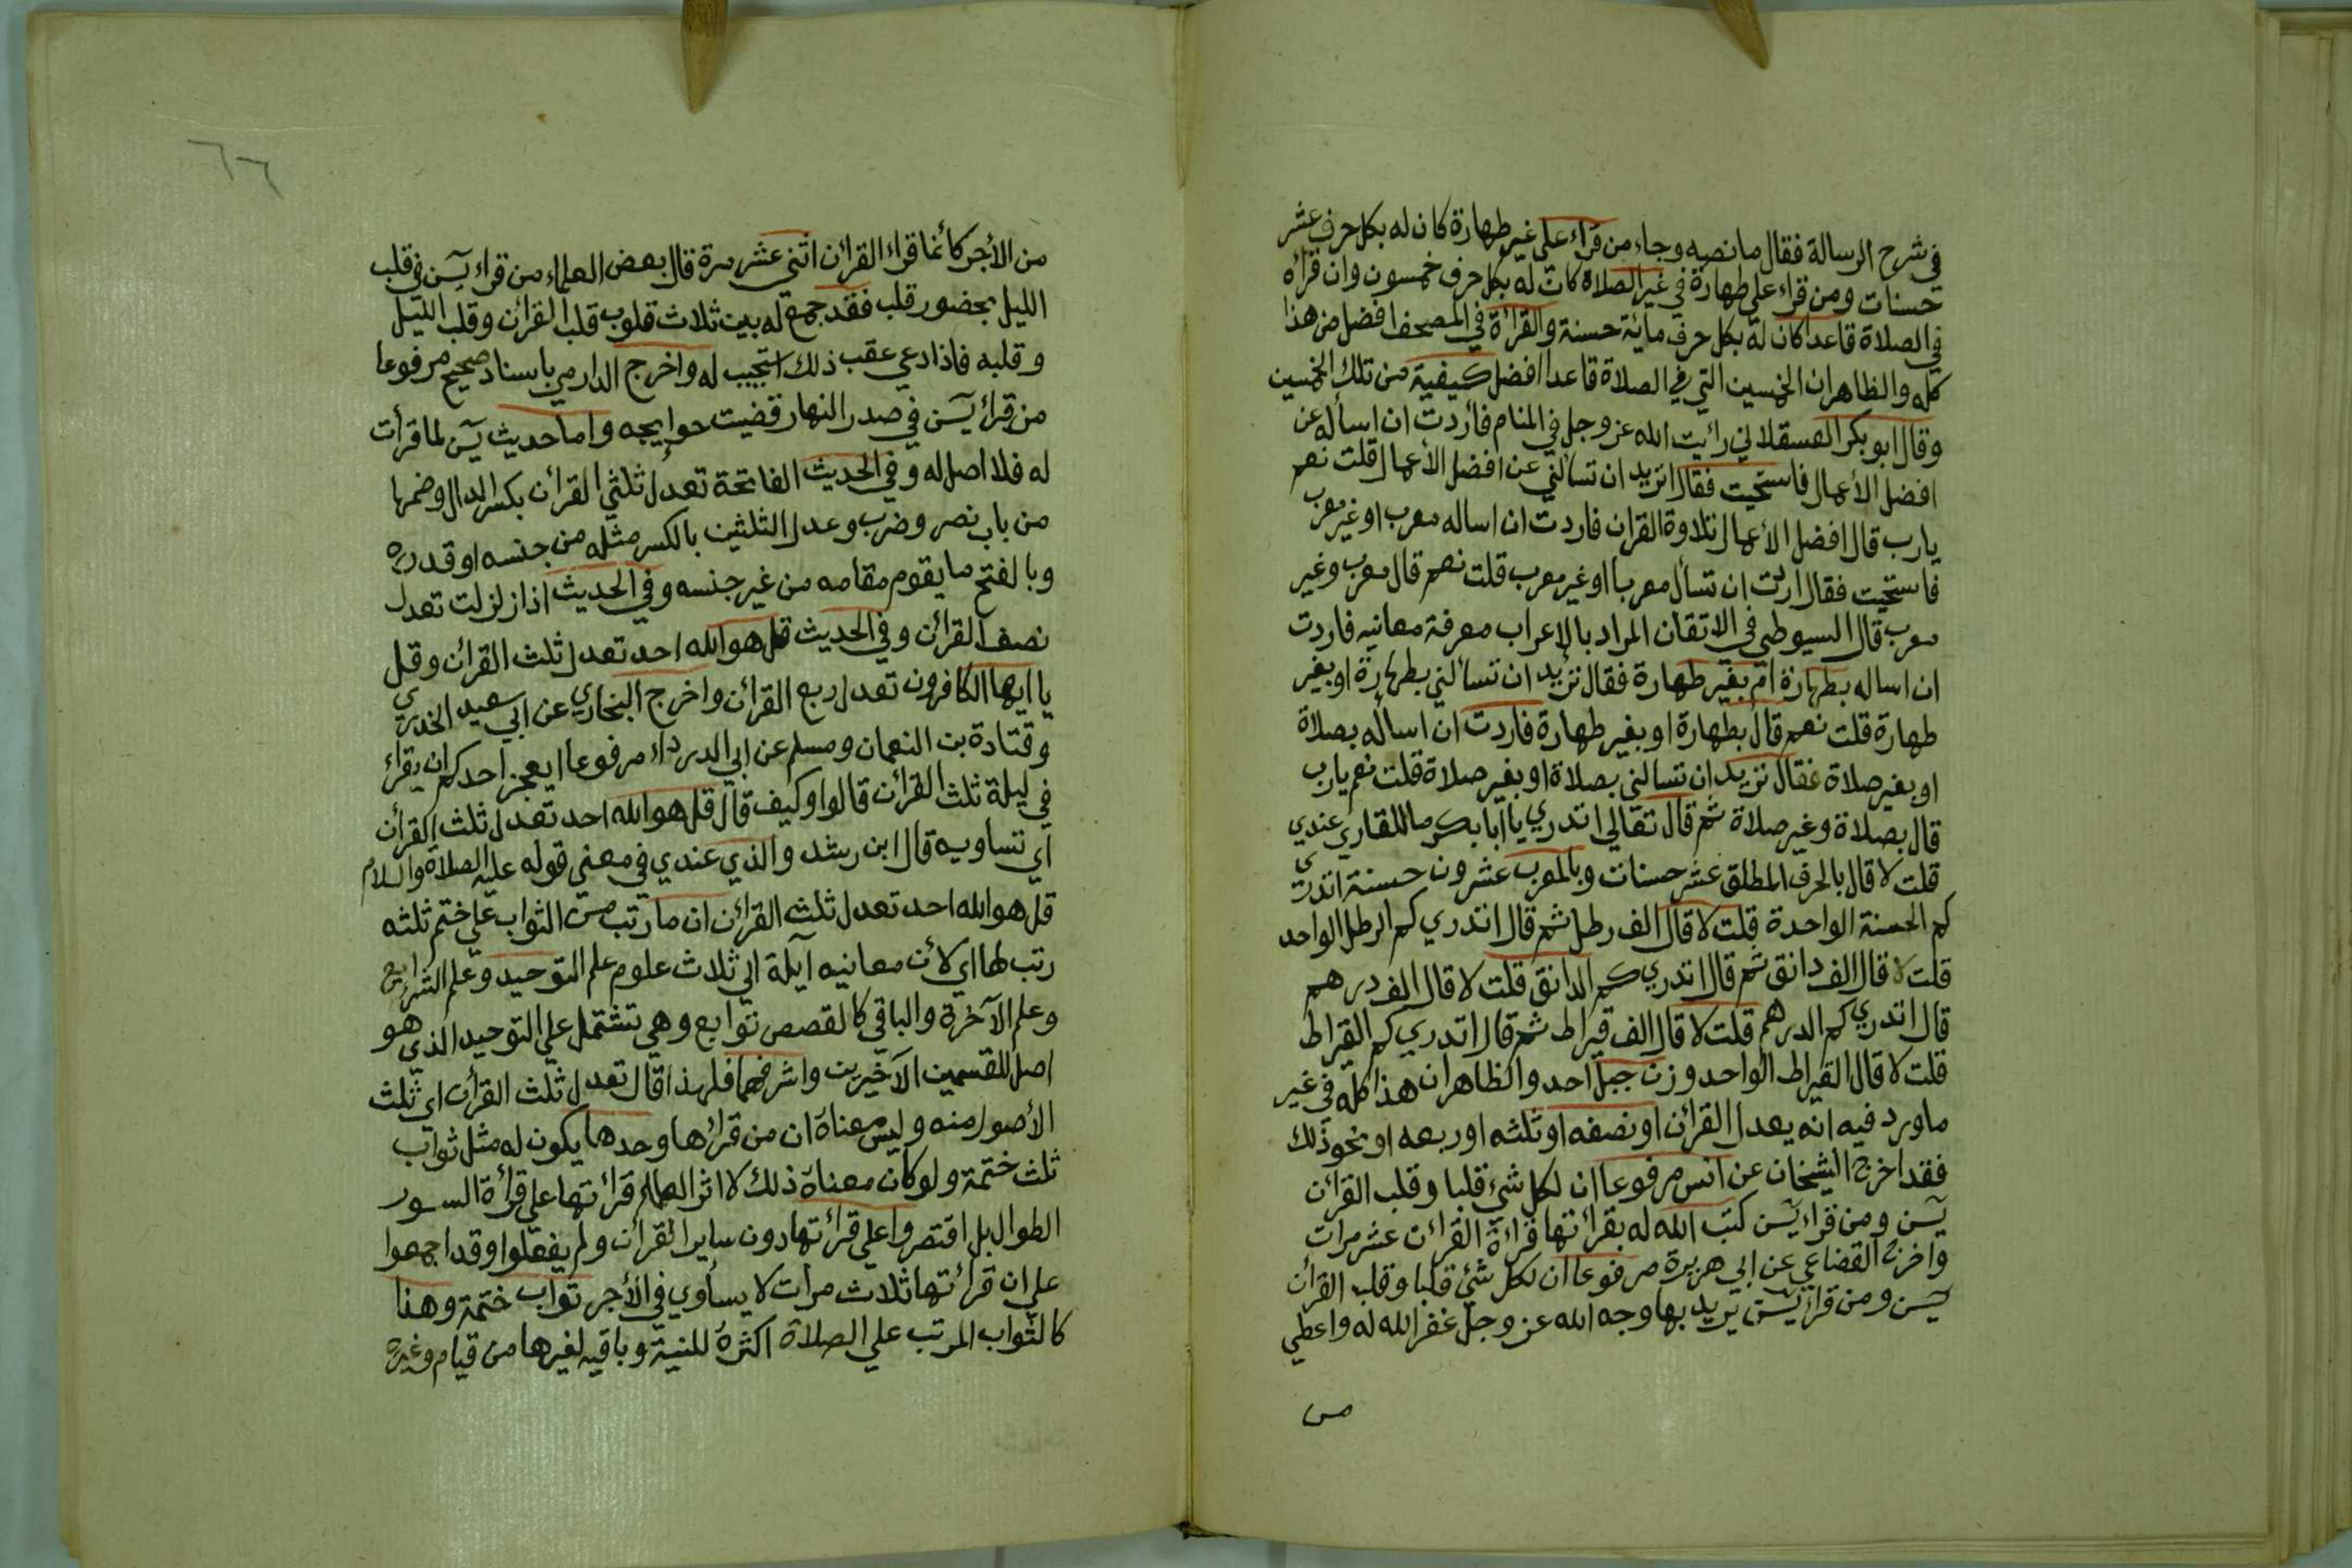 في شرح الرسالة فقال ما نصه وجاء من قراء على غير طهارة كان له بكل حرف عشر
حسنات ومن قراء على طهارة في غير الصلاة كان له بكل حرف خمسون وان قراه
في الصلاة قاعدا كان له بكل حرف ماية حسنة والقرأة في المصحف افضل من هذا
كله والظاهر ان الخمسين التي في الصلاة قاعدا افضل كيفية من تلك الخمسين
وقال ابو بكر العسقلاني رأيت الله عز وجل في المنام فأردت ان اسأله عن
افضل الأعمال فاستحيت فقال اتريد ان تسألني عن افضل الأعمال قلت نعم
يارب قال افضل الأعمال تلاوة القران فاردت ان اساله معرب او غير معرب
فاستحيت فقال اردت ان تسأل معربا او غير معرب قلت نعم قال معرب وغير
معرب قال السيوطي في الاتقان المراد بالاعراب معرفة معانيه فاردت
ان اساله بطهارة ام بغير طهارة فقال تريد ان تسألني بطهارة او بغير
طهارة قلت نعم قال بطهارة او بغير طهارة فاردت ان اسأله بصلاة
او بغير صلاة فقال تريد ان تسالني بصلاة او بغير صلاة قلت نعم يارب
قال بصلاة وغير صلاة ثم قال تعالى اتدري يا ابا بكر ما للقاري عندي
قلت لا قال بالحرف المطلق عشر حسنات وبالمعرب عشرون حسنة اتدري
كم الحسنة الواحدة قلت لا قال الف رطل ثم قال اتدري كم الرطل الواحد
قلت لا قال الف دانق ثم قال اتدري كم الدانق قلت لا قال الف درهم
قال اتدري كم الدرهم قلت لا قال الف قيراط ثم قال اتدري كم القيراط
قلت لا قال القيراط الواحد وزن جبل احد والظاهر ان هذا كله في غير
ما ورد فيه انه يعدل القرأن او نصفه او ثلثه او ربعه او نحو ذلك
فقد اخرج الشيخان عن انس مرفوعا ان لكل شيء قلبا وقلب القرأن
يسن ومن قراء يسن كتب الله له بقرأتها قراءة القرأن عشر مرات
واخرج القضاعي عن ابي هريرة مرفوعا ان لكل شيء قلبا وقلب القرأن
يسن ومن قرأ يسن يريد بها وجه الله عز وجل غفر الله له واعطي
من
٦٦
من الأجر كأنما قراء القرأن اثني عشر مرة قال بعض العلماء من قراء يسن في قلب
الليل بحضور قلب فقد جمع له بين ثلاث قلوب قلب القرأن وقلب الليل
وقلبه فاذا دعي عقب ذلك استجيب له واخرج الدارمي باسناد صحيح مرفوعا
من قرأ يسن في صدر النهار قضيت حوايجه واما حديث يسن لما قرأت
له فلا اصل له وفي الحديث الفاتحة تعدل ثلثي القرأن بكسر الدال وضمها
من باب نصر وضرب وعدل الثلثين بالكسر مثله من جنسه او قدره
وبالفتح ما يقوم مقامه من غير جنسه وفي الحديث اذا زلزلت تعدل
نصف القرأن وفي الحديث قل هو الله احد تعدل ثلث القرأن وقل
يا ايها الكافرون تعدل ربع القرأن واخرج البخاري عن ابي سعيد الخدري
وقتادة بن النعمان ومسلم عن ابي الدرداء مرفوعا ايعجز احدكم ان يقراء
في ليلة ثلث القرأن قالوا وكيف قال قل هو الله احد تعدل ثلث القرأن
اي تساويه قال ابن رشد والذي عندي في معنى قوله عليه الصلاة والسلام
قل هو الله احد تعدل ثلث القرأن ان ما رتب من الثواب على ختم ثلثه
رتب لها اي لأن معانيه آيلة الى ثلاث علوم علم التوحيد وعلم الشرايع
وعلم الآخرة والباقي كالقصص توابع وهي تشتمل على التوحيد الذي هو
اصل للقسمين الآخيرين واشرفهما فلهذا قال تعدل ثلث القرأن اي ثلث
الأصول منه وليس معناه ان من قرأها وحدها يكون له مثل ثواب
ثلث ختمة ولو كان معناه ذلك لاثر العلماء قرأتها على قرأة السور
الطوال بل اقتصروا على قرأتها دون ساير القرأن ولم يفعلوا وقد اجمعوا
على ان قرأتها ثلاث مرات لا يساوي في الأجر ثواب ختمة وهذا
كالثواب المرتب على الصلاة اكثره للنية وباقيه لغيرها من قيام وغيره